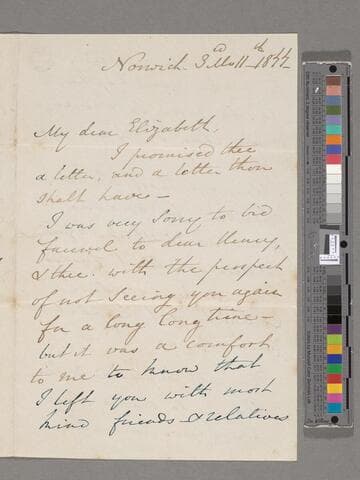 Norwich 3rd Mo 11th 1844
My dear Elizabeth,
I promised thee
a letter, and a letter thou
shalt have –
I was very sorry to bid
farewel to dear Henry,
& thee. with the prospect
of not seeing you again
for a long long time –
but it was a comfort
to me to know that
I left you with most
kind friends & relatives